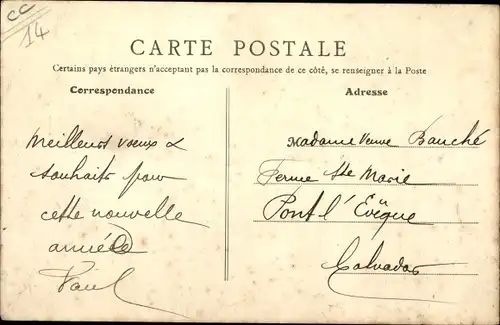 CC
14
CARTE POSTALE
Certains pays étrangers n'acceptant pas la correspondance de ce côté, se renseigner à la Poste
Correspondance
Meilleurs voeux &
souhaits pour
cette nouvelle
année
Paul
Adresse
Madame Veuve Bauché
Ferme Ste Marie
Pont l'Evêque
Calvados